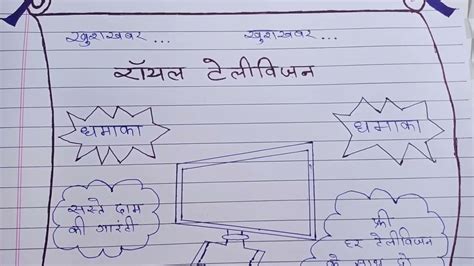 खुशखबर... खुशखबर...
रॉयल टेलीविजन
धमाका धमाका
सस्ते दाम
की गारंटी
फ्री
हर टेलीविजन
के साथ दो